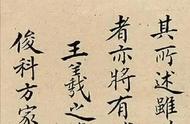 其所述雖
者亦將有
王羲之
俊科方家